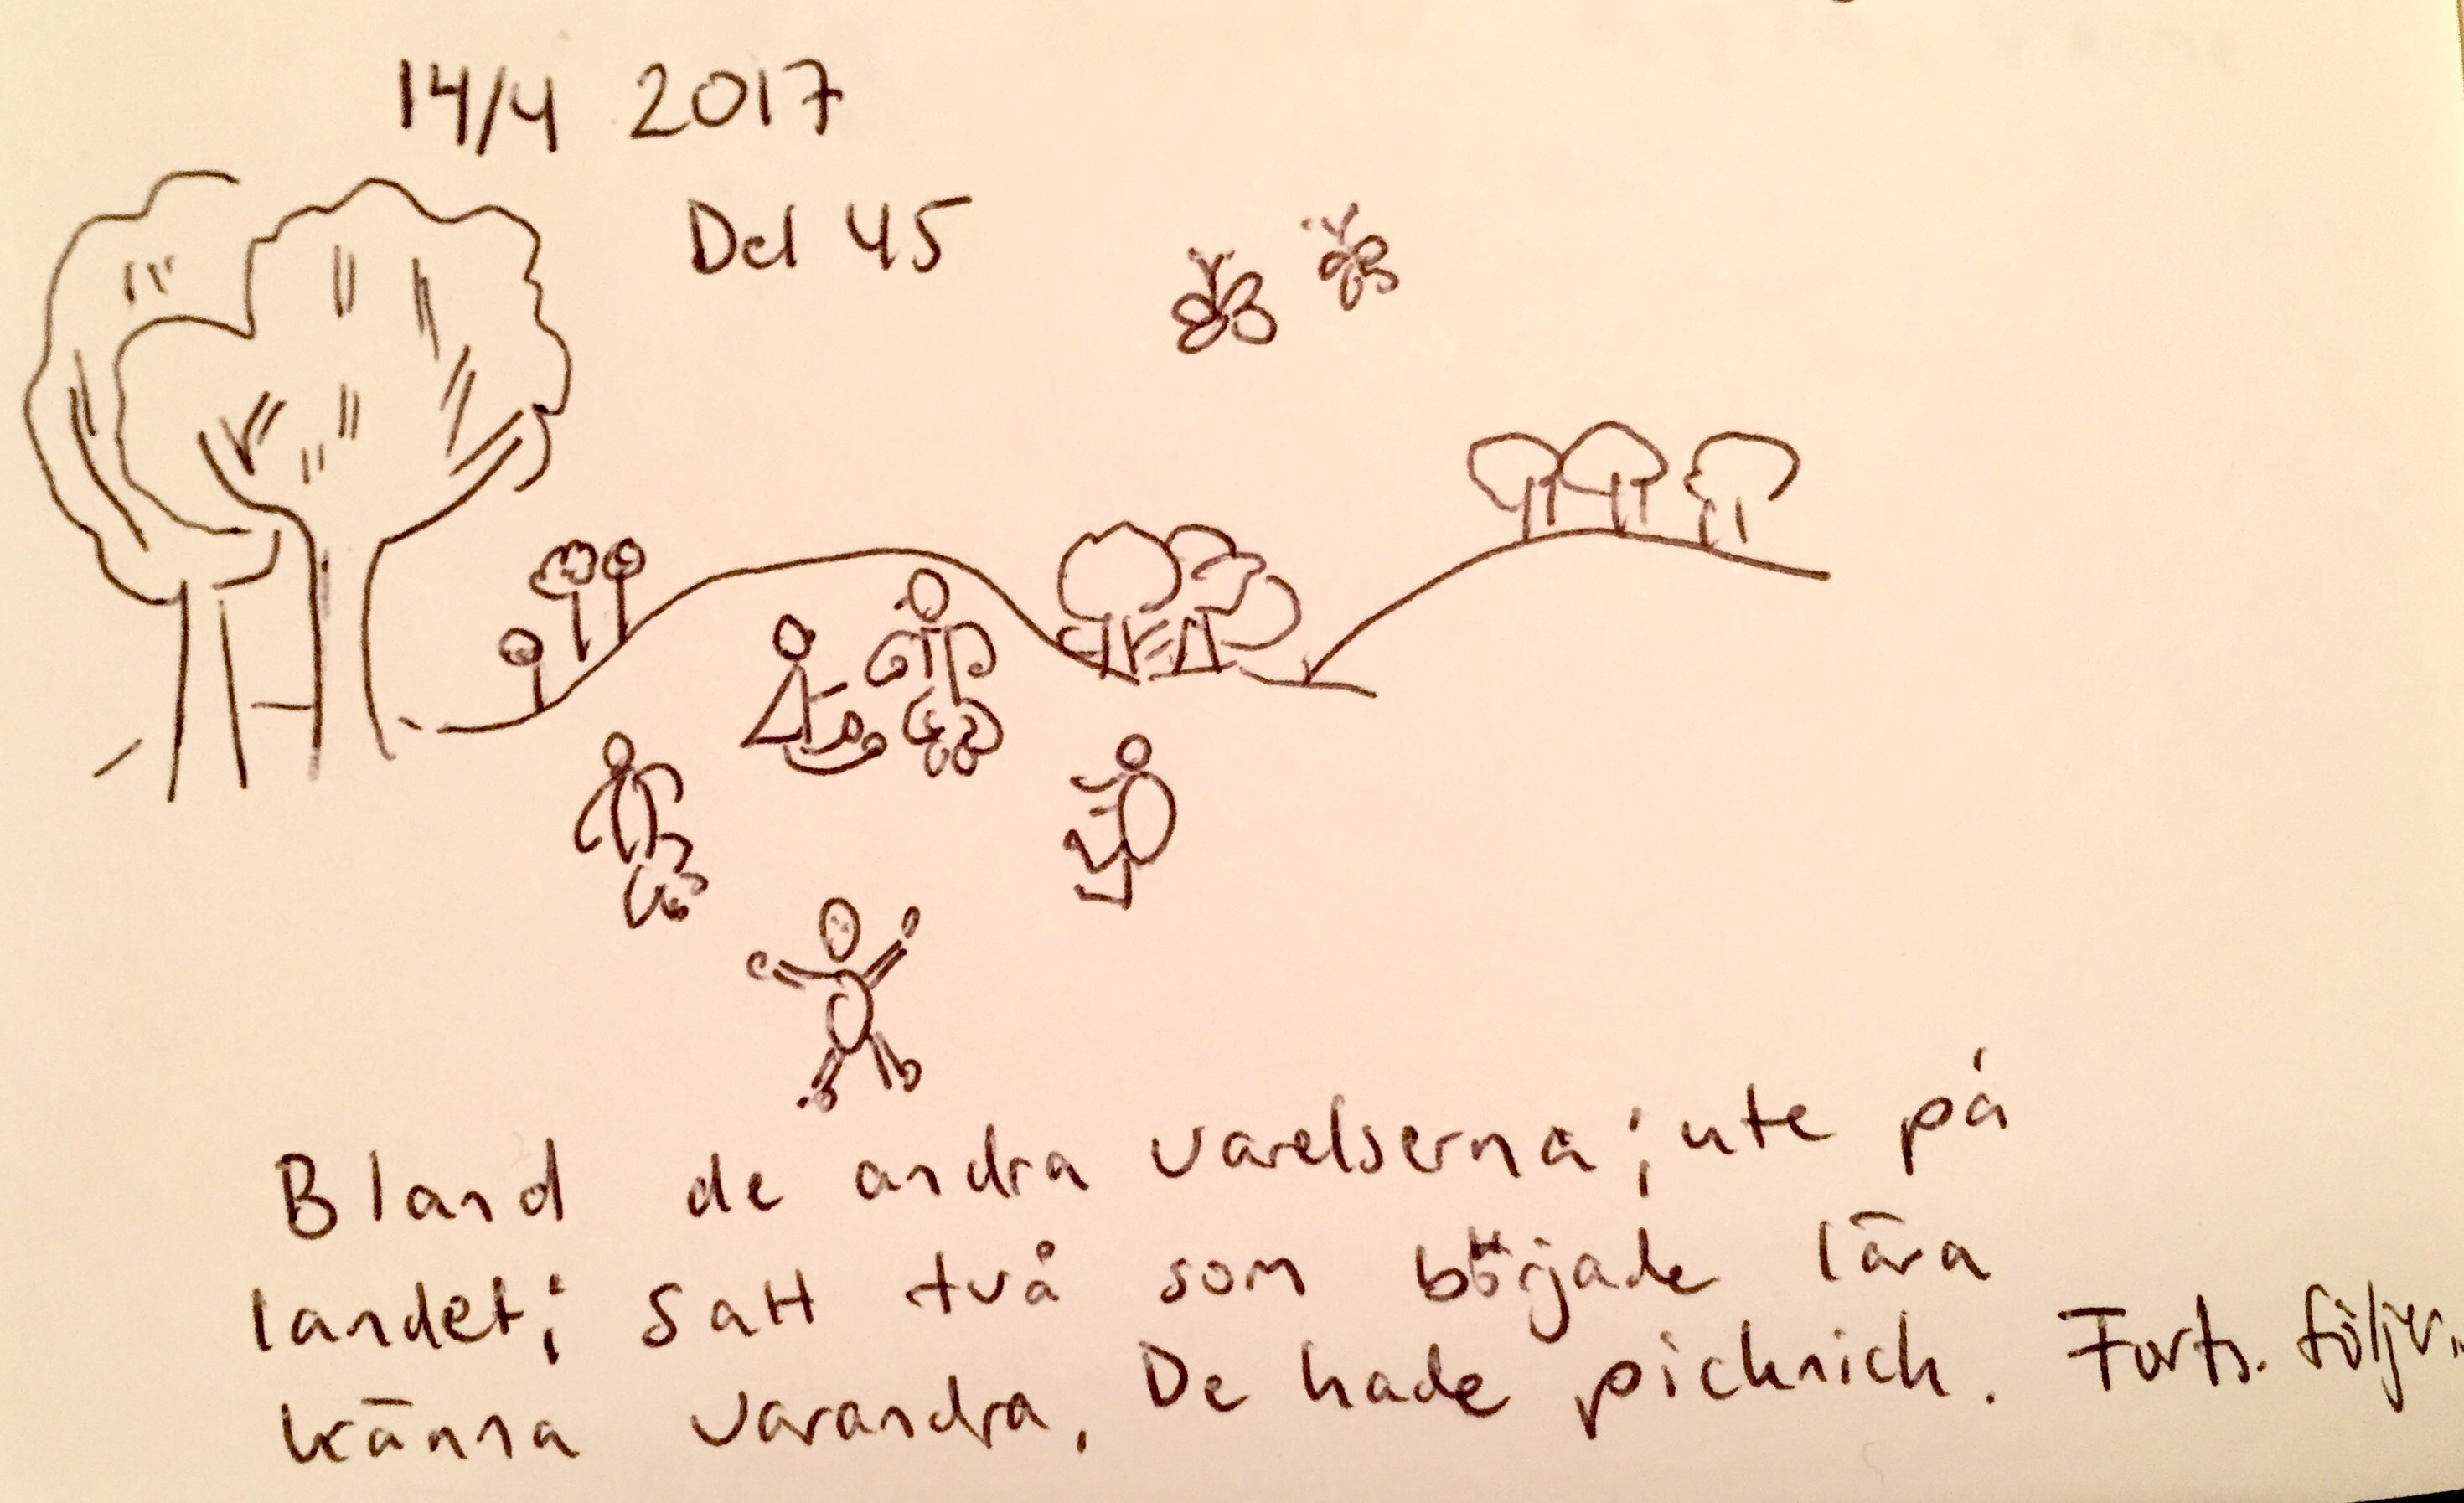 14/4 2017
Del 45
Bland de andra varelserna; ute på
landet; satt två som började lära
känna varandra. De hade picknick. Forts. följer.